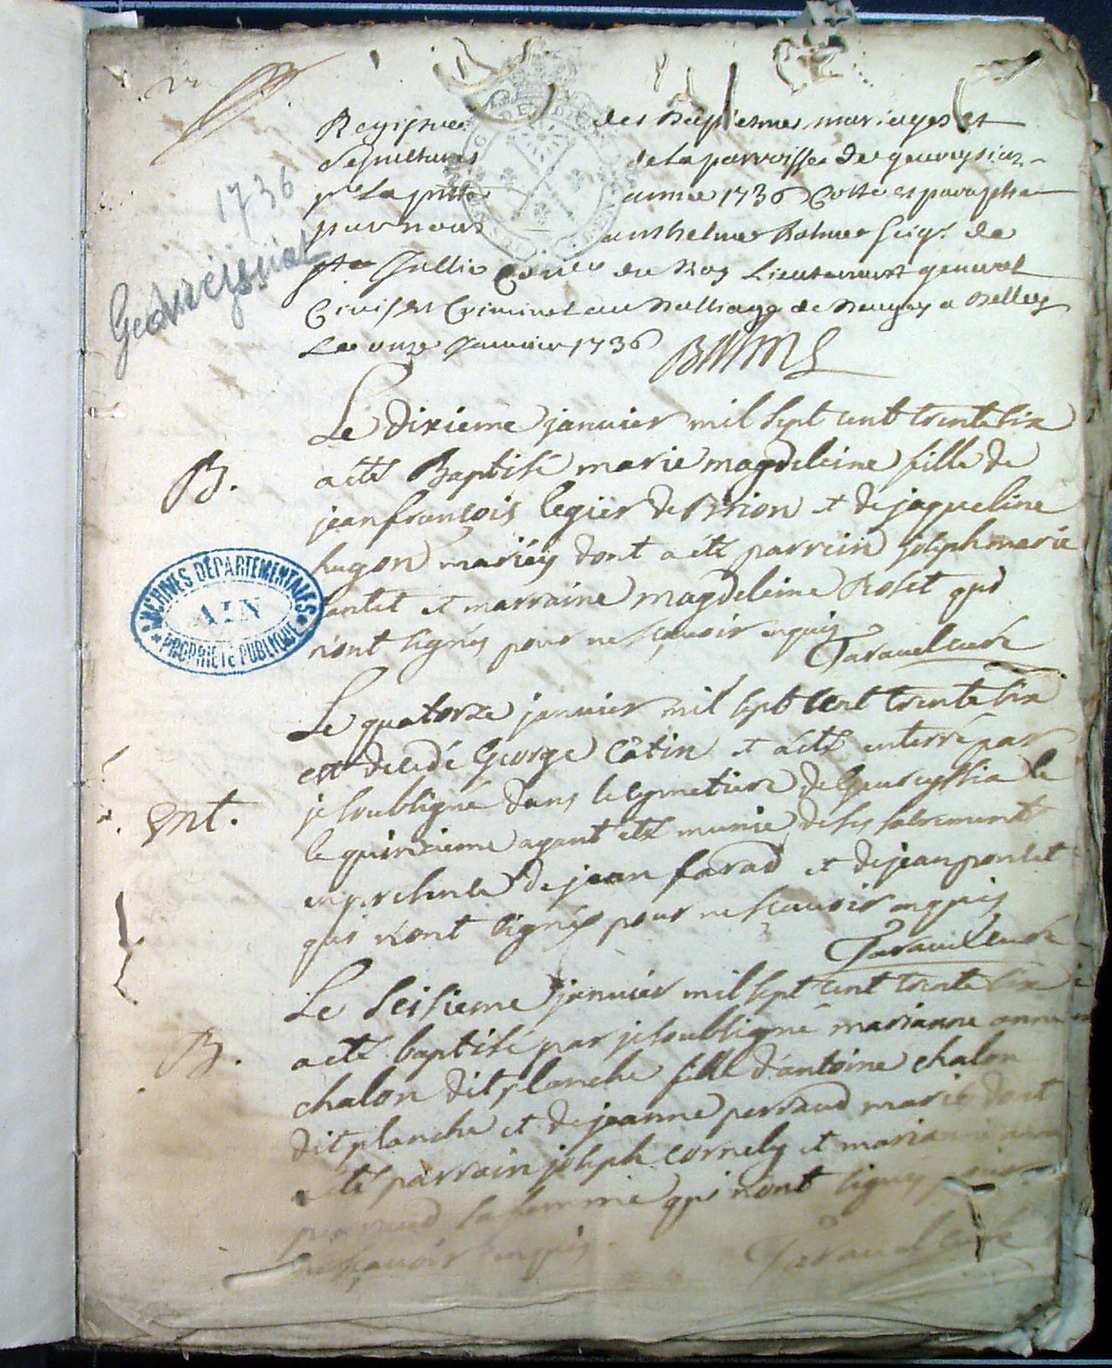 1736
Geovreissiat
Registre des Baptesmes mariages et
Sepultures de la parroisse de geovreysiaz
pr la pnte année 1736 Cotté et paraphé
par nous anthelme Balme Seigr. de
Ste Jullie Coner du Roy Lieutenant general
Civil et Criminel au Balliage de Beugey a Belley
Le onze Janvier 1736 Balme
Le dixieme janvier mil sept cent trente six
B. a eté Baptisé marie magdeleine fille de
jean françois legier de Brion et de jaqueline
hugon mariéz dont a eté parrein joseph marie
tentet et marraine magdeleine Roset qui
n'ont signés pour ne sçavoir enquis
Taravel curé
Le quatorze janvier mil sept cent trente six
est decedé George Câtin et a eté enterré par
Ent. je soubsigné dans le cymetiere de Geureyssia le
le quinzieme ayant eté munie de ses sacrements
en presence de jean farad et de jean pontet
qui n'ont signés pour ne sçavoir enquis
Taravel curé
Le seisieme janvier mil sept cent trente six
B. a eté baptisé par je soubsigné marianne anne
chalon dit planche fille d'antoine chalon
dit planche et de jeanne perraud mariés dont
a eté parrain joseph cornely et marianne
perraud sa femme qui n'ont signés pour
ne sçavoir enquis
Taravel curé
ARCHIVES DÉPARTEMENTALES
AIN
PROPRIÉTÉ PUBLIQUE